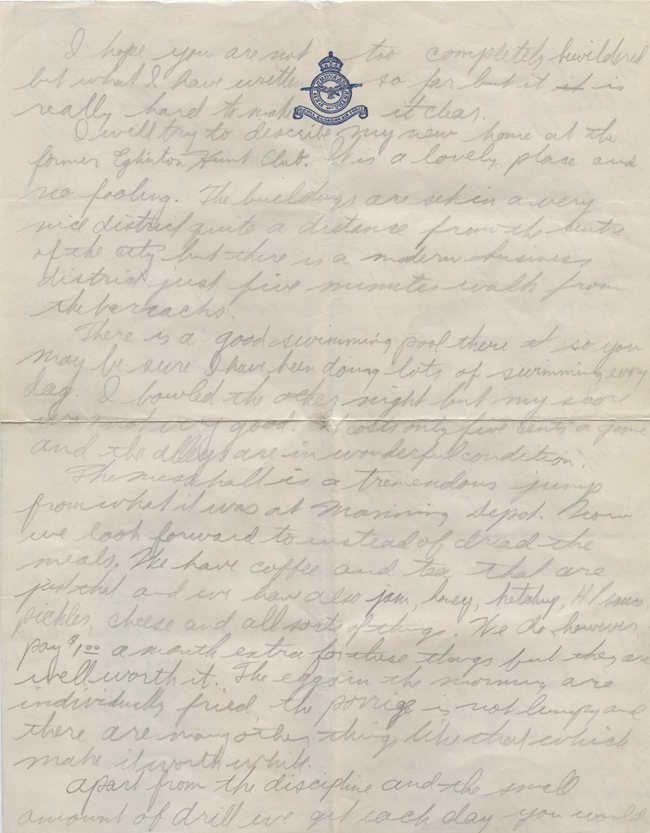 I hope you are not too completely bewildered
but what I have written so far but it is is
really hard to make it clear.
I will try to describe my new home at the
former Eglinton Hunt Club. It is a lovely place and
no fooling. The buildings are set in a very
nice district quite a distance from the centre
of the city but there is a modern business
district just five minutes walk from
the barracks.
There is a good swimming pool there so you
may be sure I have been doing lots of swimming every
day. I bowled the other night but my score
was not very good. It costs only five cents a game
and the alleys are in wonderful condition.
The mess hall is a tremendous jump
from what it was at Manning Depot. Now
we look forward to instead of dread the
meals. We have coffee and tea that are
just that and we have also jam, honey, ketchup, H P sauce,
pickles, cheese and all sorts of things. We do, however,
pay $1.00 a month extra for these things but they are
well worth it. The eggs in the morning are
individually fried the porrige is not lumpy and
there are many other things like that which
make it worth while.
Apart from the discipline and the small
amount of drill we get each day you would